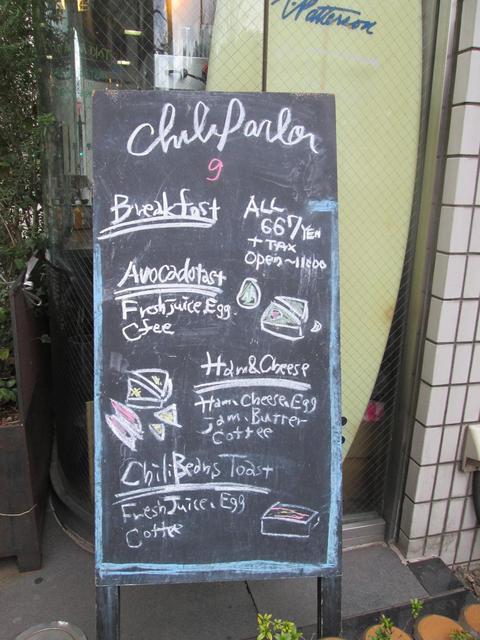 Patterson
Chili Parlor
9
Breakfast
ALL
667 YEN
+ TAX
Open~11:00
Avocadotast
Fresh juice, Egg.
Cfee
Ham&Cheese
Ham, Cheese, Egg
Jam, Butter
Coffee
ChiliBeans Toast
Fresh Juice, Egg
Coffee